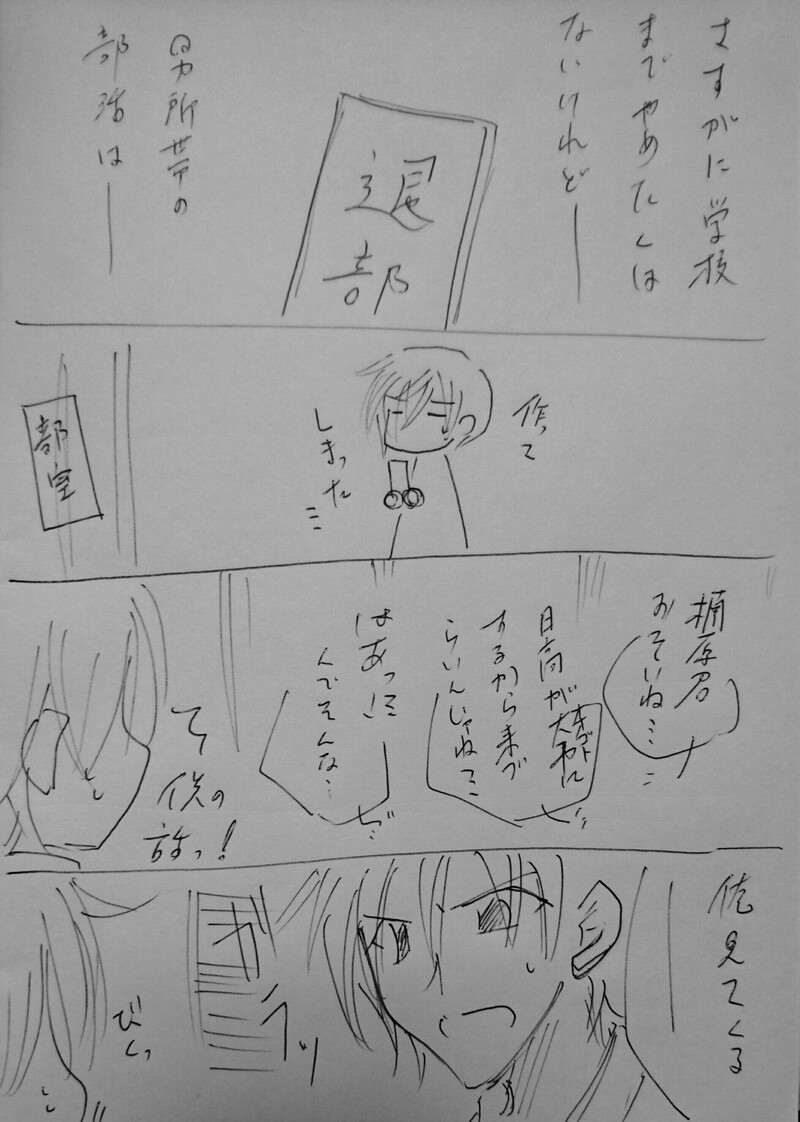 さすがに学校
までやめたくは
ないけれど―
退
部
男所帯の
部活は―
作って
しまった…
部
室
楠原君
おそいね…
日高が大事に
オゴト
するから来づ
らいんじゃね
はあっ!?
んでそんな…
て俺の
話っ!
俺見てくる
ガ
ラッ
びくっ